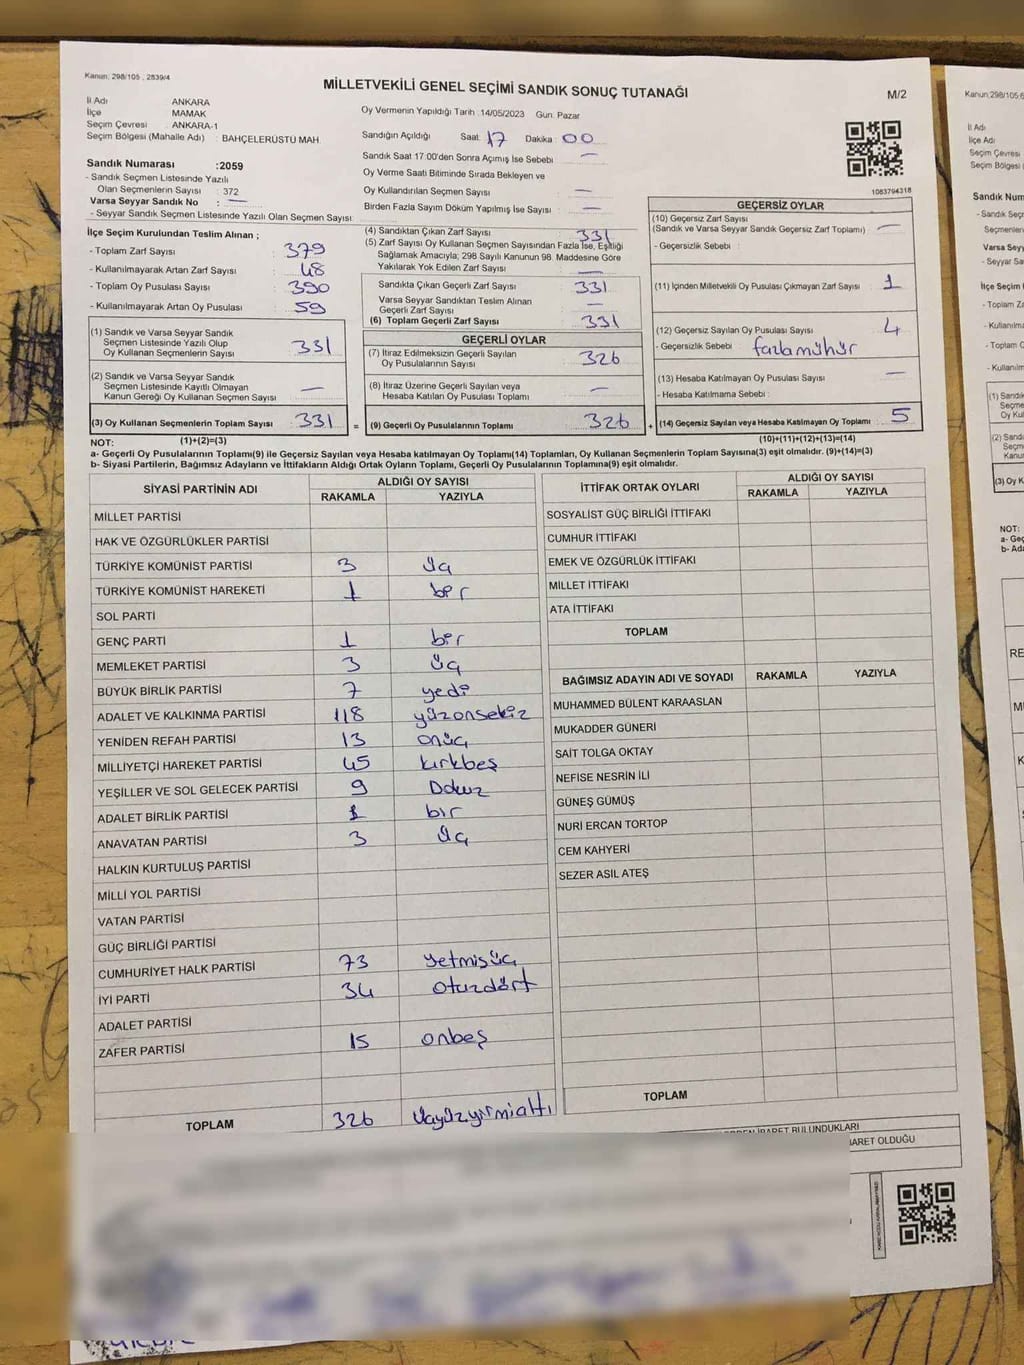 Kanun; 298/105 , 2839/4
MİLLETVEKİLİ GENEL SEÇİMİ SANDIK SONUÇ TUTANAĞI
M/2
İl Adı ANKARA
İlçe MAMAK
Seçim Çevresi ANKARA-1
Seçim Bölgesi (Mahalle Adı) : BAHÇELERÜSTÜ MAH
Oy Vermenin Yapıldığı Tarih :14/05/2023 Gün: Pazar
Sandığın Açıldığı Saat: 17 Dakika : 00
Sandık Saat 17:00'den Sonra Açımış İse Sebebi : —
Oy Verme Saati Bitiminde Sırada Bekleyen ve
Oy Kullandırılan Seçmen Sayısı : —
Birden Fazla Sayım Döküm Yapılmış İse Sayısı : —
1083794318
Sandık Numarası :2059
- Sandık Seçmen Listesinde Yazılı
Olan Seçmenlerin Sayısı : 372
Varsa Seyyar Sandık No : —
- Seyyar Sandık Seçmen Listesinde Yazılı Olan Seçmen Sayısı:
İlçe Seçim Kurulundan Teslim Alınan ;
- Toplam Zarf Sayısı : 379
- Kullanılmayarak Artan Zarf Sayısı : 48
- Toplam Oy Pusulası Sayısı : 390
- Kullanılmayarak Artan Oy Pusulası : 59
(1) Sandık ve Varsa Seyyar Sandık
Seçmen Listesinde Yazılı Olup
Oy Kullanan Seçmenlerin Sayısı : 331
(2) Sandık ve Varsa Seyyar Sandık
Seçmen Listesinde Kayıtlı Olmayan
Kanun Gereği Oy Kullanan Seçmen Sayısı : —
(3) Oy Kullanan Seçmenlerin Toplam Sayısı : 331
(4) Sandıktan Çıkan Zarf Sayısı : 331
(5) Zarf Sayısı Oy Kullanan Seçmen Sayısından Fazla İse, Eşitliği
Sağlamak Amacıyla; 298 Sayılı Kanunun 98. Maddesine Göre
Yakılarak Yok Edilen Zarf Sayısı : —
Sandıkta Çıkan Geçerli Zarf Sayısı : 331
Varsa Seyyar Sandıktan Teslim Alınan
Geçerli Zarf Sayısı : —
(6) Toplam Geçerli Zarf Sayısı : 331
GEÇERLİ OYLAR
(7) İtiraz Edilmeksizin Geçerli Sayılan
Oy Pusulalarının Sayısı : 326
(8) İtiraz Üzerine Geçerli Sayılan veya
Hesaba Katılan Oy Pusulası Toplamı : —
= (9) Geçerli Oy Pusulalarının Toplamı : 326
GEÇERSİZ OYLAR
(10) Geçersiz Zarf Sayısı
(Sandık ve Varsa Seyyar Sandık Geçersiz Zarf Toplamı) : —
- Geçersizlik Sebebi :
(11) İçinden Milletvekili Oy Pusulası Çıkmayan Zarf Sayısı : 1
(12) Geçersiz Sayılan Oy Pusulası Sayısı : 4
- Geçersizlik Sebebi : fazlamühür
(13) Hesaba Katılmayan Oy Pusulası Sayısı : —
- Hesaba Katılmama Sebebi :
+ (14) Geçersiz Sayılan veya Hesaba Katılmayan Oy Toplamı : 5
NOT: (1)+(2)=(3) (10)+(11)+(12)+(13)=(14)
a- Geçerli Oy Pusulalarının Toplamı(9) ile Geçersiz Sayılan veya Hesaba katılmayan Oy Toplamı(14) Toplamları, Oy Kullanan Seçmenlerin Toplam Sayısına(3) eşit olmalıdır. (9)+(14)=(3)
b- Siyasi Partilerin, Bağımsız Adayların ve İttifakların Aldığı Ortak Oyların Toplamı, Geçerli Oy Pusulalarının Toplamına(9) eşit olmalıdır.
SİYASİ PARTİNİN ADI ALDIĞI OY SAYISI
RAKAMLA YAZIYLA
MİLLET PARTİSİ
HAK VE ÖZGÜRLÜKLER PARTİSİ
TÜRKİYE KOMÜNİST PARTİSİ 3 üç
TÜRKİYE KOMÜNİST HAREKETİ 1 bir
SOL PARTİ
GENÇ PARTİ 1 bir
MEMLEKET PARTİSİ 3 üç
BÜYÜK BİRLİK PARTİSİ 7 yedi
ADALET VE KALKINMA PARTİSİ 118 yüzonsekiz
YENİDEN REFAH PARTİSİ 13 onüç
MİLLİYETÇİ HAREKET PARTİSİ 45 kırkbeş
YEŞİLLER VE SOL GELECEK PARTİSİ 9 Dokuz
ADALET BİRLİK PARTİSİ 1 bir
ANAVATAN PARTİSİ 3 üç
HALKIN KURTULUŞ PARTİSİ
MİLLİ YOL PARTİSİ
VATAN PARTİSİ
GÜÇ BİRLİĞİ PARTİSİ
CUMHURİYET HALK PARTİSİ 73 yetmişüç
İYİ PARTİ 34 otuzdört
ADALET PARTİSİ
ZAFER PARTİSİ 15 onbeş
TOPLAM 326 üçyüzyirmialtı
İTTİFAK ORTAK OYLARI ALDIĞI OY SAYISI
RAKAMLA YAZIYLA
SOSYALİST GÜÇ BİRLİĞİ İTTİFAKI
CUMHUR İTTİFAKI
EMEK VE ÖZGÜRLÜK İTTİFAKI
MİLLET İTTİFAKI
ATA İTTİFAKI
TOPLAM
BAĞIMSIZ ADAYIN ADI VE SOYADI RAKAMLA YAZIYLA
MUHAMMED BÜLENT KARAASLAN
MUKADDER GÜNERİ
SAİT TOLGA OKTAY
NEFİSE NESRİN İLİ
GÜNEŞ GÜMÜŞ
NURİ ERCAN TORTOP
CEM KAHYERİ
SEZER ASIL ATEŞ
TOPLAM
İBARET BULUNDUKLARI
OLDUĞU
Kanun;298/105;6
İl Adı
İlçe Adı
Seçim Çevresi
Seçim Bölgesi
Sandık Num